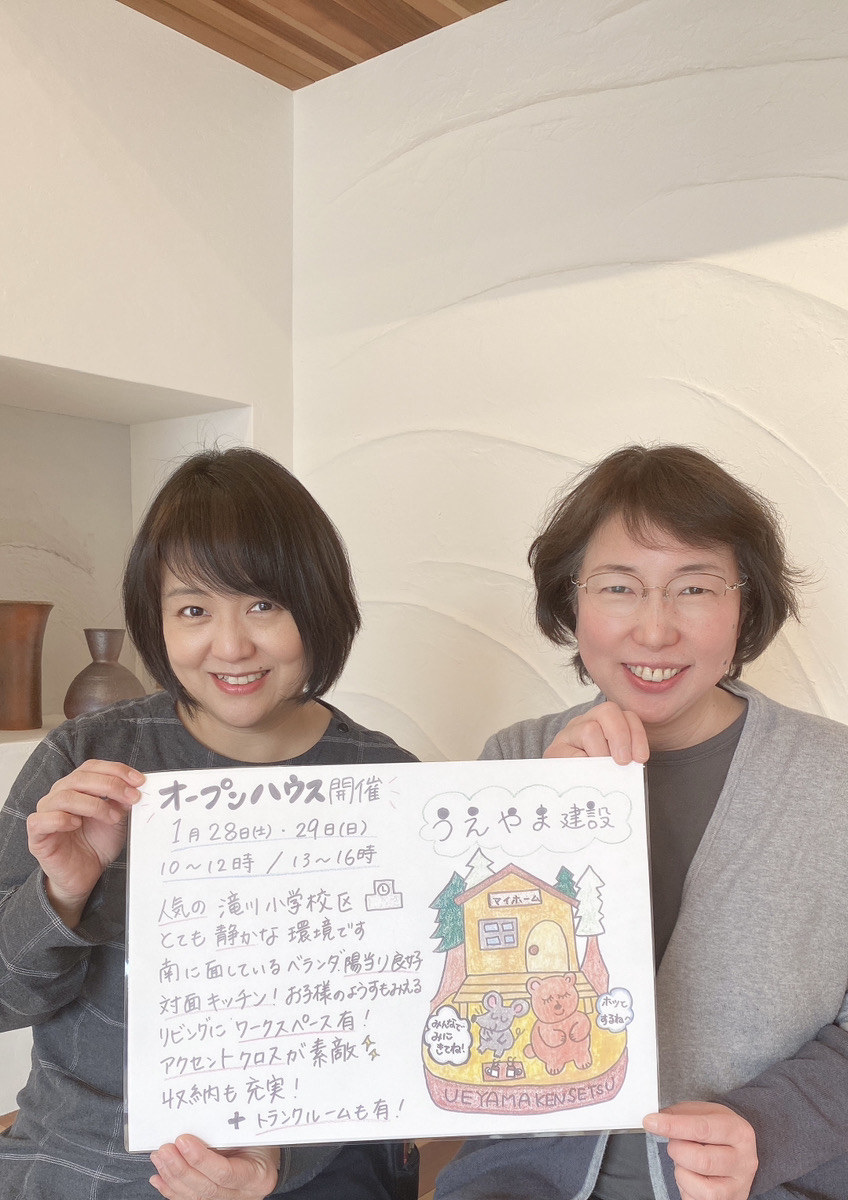 オープンハウス開催
1月28日(土)・29日(日)
10～12時 / 13～16時
人気の 滝川小学校区
とても 静かな 環境です
南に面しているベランダ、陽当り良好
対面キッチン！お子様のようすもみえる
リビングにワークスペース有！
アクセントクロスが素敵
収納も充実！
+ トランクルームも有！
うえやま建設
マイホーム
みんなで
みに
きてね！
ホッと
するね〜
UEYAMAKENSETSU